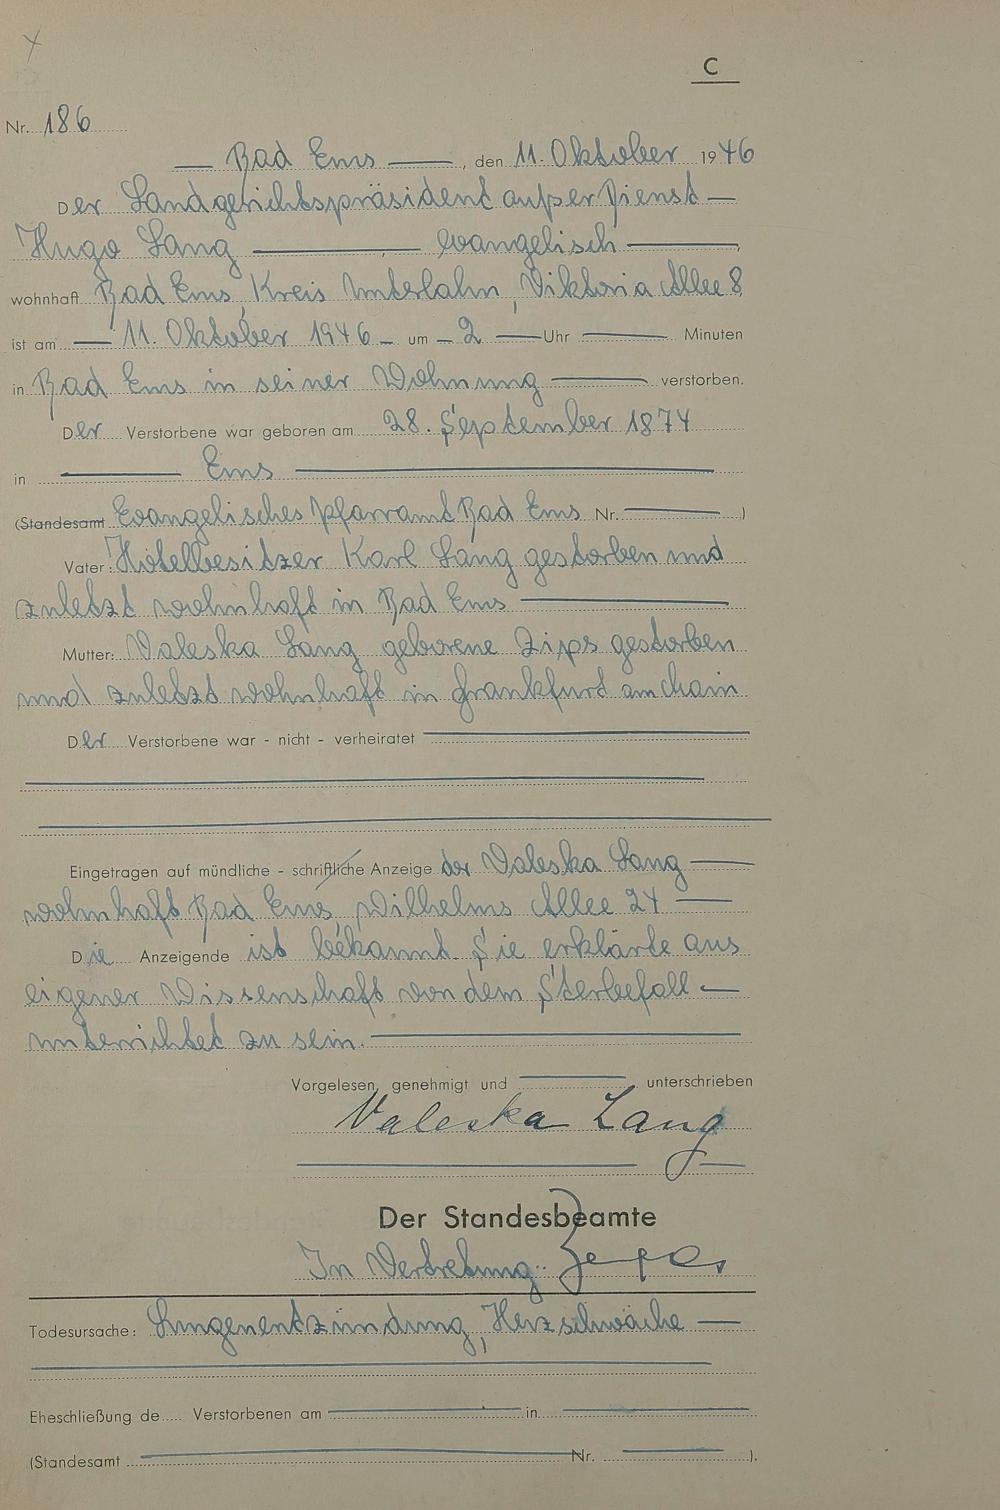 C
Nr. 186
Bad Ems, den 11. Oktober 1946
Der Landgerichtspräsident außer Dienst
Hugo Lang evangelisch
wohnhaft Bad Ems, Kreis Unterlahn, Viktoria Allee 8
ist am 11. Oktober 1946 um 2 Uhr Minuten
in Bad Ems in seiner Wohnung verstorben.
Der Verstorbene war geboren am 28. September 1874
in Ems
(Standesamt Evangelisches Pfarramt Bad Ems Nr. )
Vater: Hotelbesitzer Karl Lang gestorben und
zuletzt wohnhaft in Bad Ems
Mutter: Valeska Lang geborene Zips gestorben
und zuletzt wohnhaft in Frankfurt am Main
Der Verstorbene war - nicht - verheiratet
Eingetragen auf mündliche - schriftliche Anzeige der Valeska Lang
wohnhaft Bad Ems, Wilhelms Allee 24
Die Anzeigende ist bekannt. Sie erklärte aus
eigener Wissenschaft von dem Sterbefall
unterrichtet zu sein.
Vorgelesen, genehmigt und unterschrieben
Valeska Lang
Der Standesbeamte
In Vertretung:
Todesursache: Lungenentzündung, Herzschwäche
Eheschließung de Verstorbenen am in
(Standesamt Nr. ).